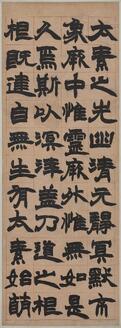 太素之先幽清元靜冥默
象厥中惟靈厥外惟無如是
久焉斯以溟涬蓋乃道之根
根既建自無生有太素始萌